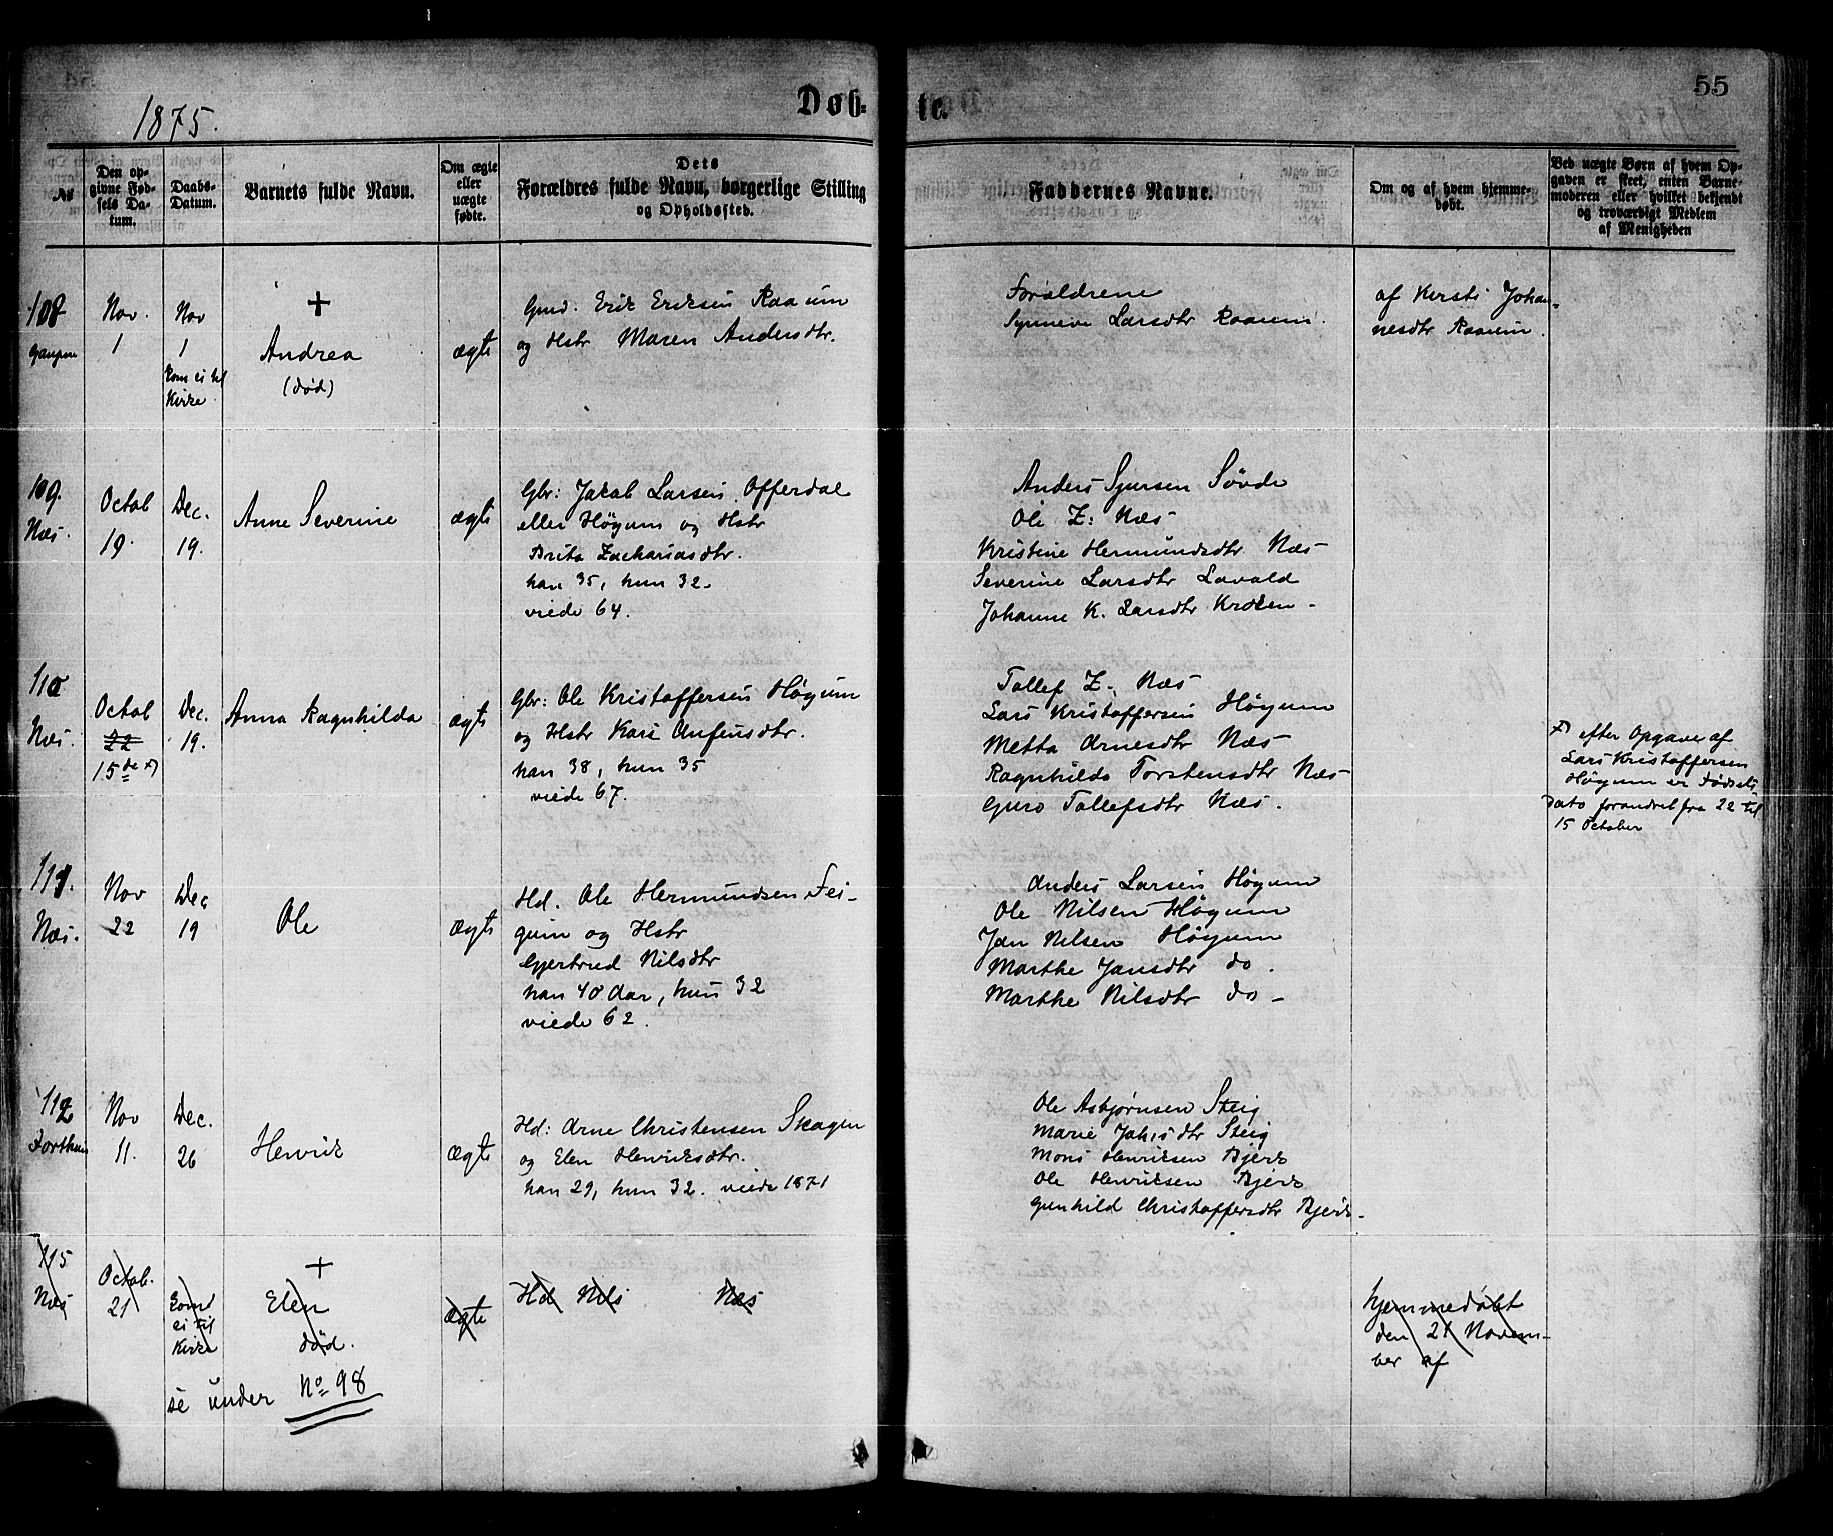 1875.
Døb-
te.
55
No
Den op-
givne Fød-
sels Da-
tum.
Daabs-
Datum.
Barnets fulde Navn.
Om ægte
eller
uægte
fødte.
Dets
Forældres fulde Navn, borgerlige Stilling
og Opholdssted.
Faddernes Navne.
Om og af hvem hjemme-
døbt.
Ved uægte Børn af hvem Op-
gaven er skeet, enten Barne-
moderen eller hvilket bekjendt
og troværdigt Medlem
af Menigheden
108
Gaupne
Nov.
1
Nov
1
kom ei til
Kirke
+
Andrea
(død)
ægte
Gmd: Erik Eriksen Raaum
og Hstr Maren Andersdtr.
Forældrene
Synneve Larsdtr Raaum.
af Kersti Johan-
nesdtr Raaum.
109.
Næs.
Octob
19.
Dec.
19.
Anne Severine
ægte
Gbr: Jakob Larsen Offerdal
eller Høgum og Hstr
Brita Zachariasdtr.
han 35, hun 32.
viede 64.
Anders Sjursen Søvde
Ole Z: Næs
Kristine Hermundsdtr Næs
Severine Larsdtr Lavold
Johanne K. Larsdtr Kroken.
110
Næs.
Octob
22
15de x)
Dec.
19.
Anna Ragnhilda
ægte
Gbr: Ole Kristoffersen Høgum
og Hstr Kari Anfinsdtr.
han 38, hun 35
viede 67.
Tollef Z. Næs
Lars Kristoffersen Høgum
Metta Arnesdtr Næs
Ragnhilda Torstensdtr Næs
Guro Tollefsdtr Næs.
x) efter Opgave af
Lars Kristoffersen
Høgum er Fødsels
dato forandret fra 22 til
15 October
111.
Næs.
Nov
22
Dec
19
Ole
ægte
Hd. Ole Hermundsen Fei-
gum og Hstr
Gjertrud Nilsdtr
han 40 Aar, hun 32
viede 62.
Anders Larsen Høgum
Ole Nilsen Høgum
Jan Nilsen Høgum
Marthe Jansdtr do.
Marthe Nilsdtr do-
112
Forthun
Nov
11.
Dec.
26
Henrik
ægte
Hd: Arne Christensen Skagen
og Elen Henriksdtr.
han 29, hun 32. viede 1871
Ole Asbjørnsen Steig
Marie Johsdtr Steig
Mons Henriksen Bjerk
Ole Henriksen Bjerk
Gunhild Christoffersdtr Bjerk.
115
Næs
Octob.
21
komt
ei til
Kirke
+
Elen
død.
ægte
Hd Nils Næs
hjemmedøbt
den 21 Novem-
ber af
se under No 98